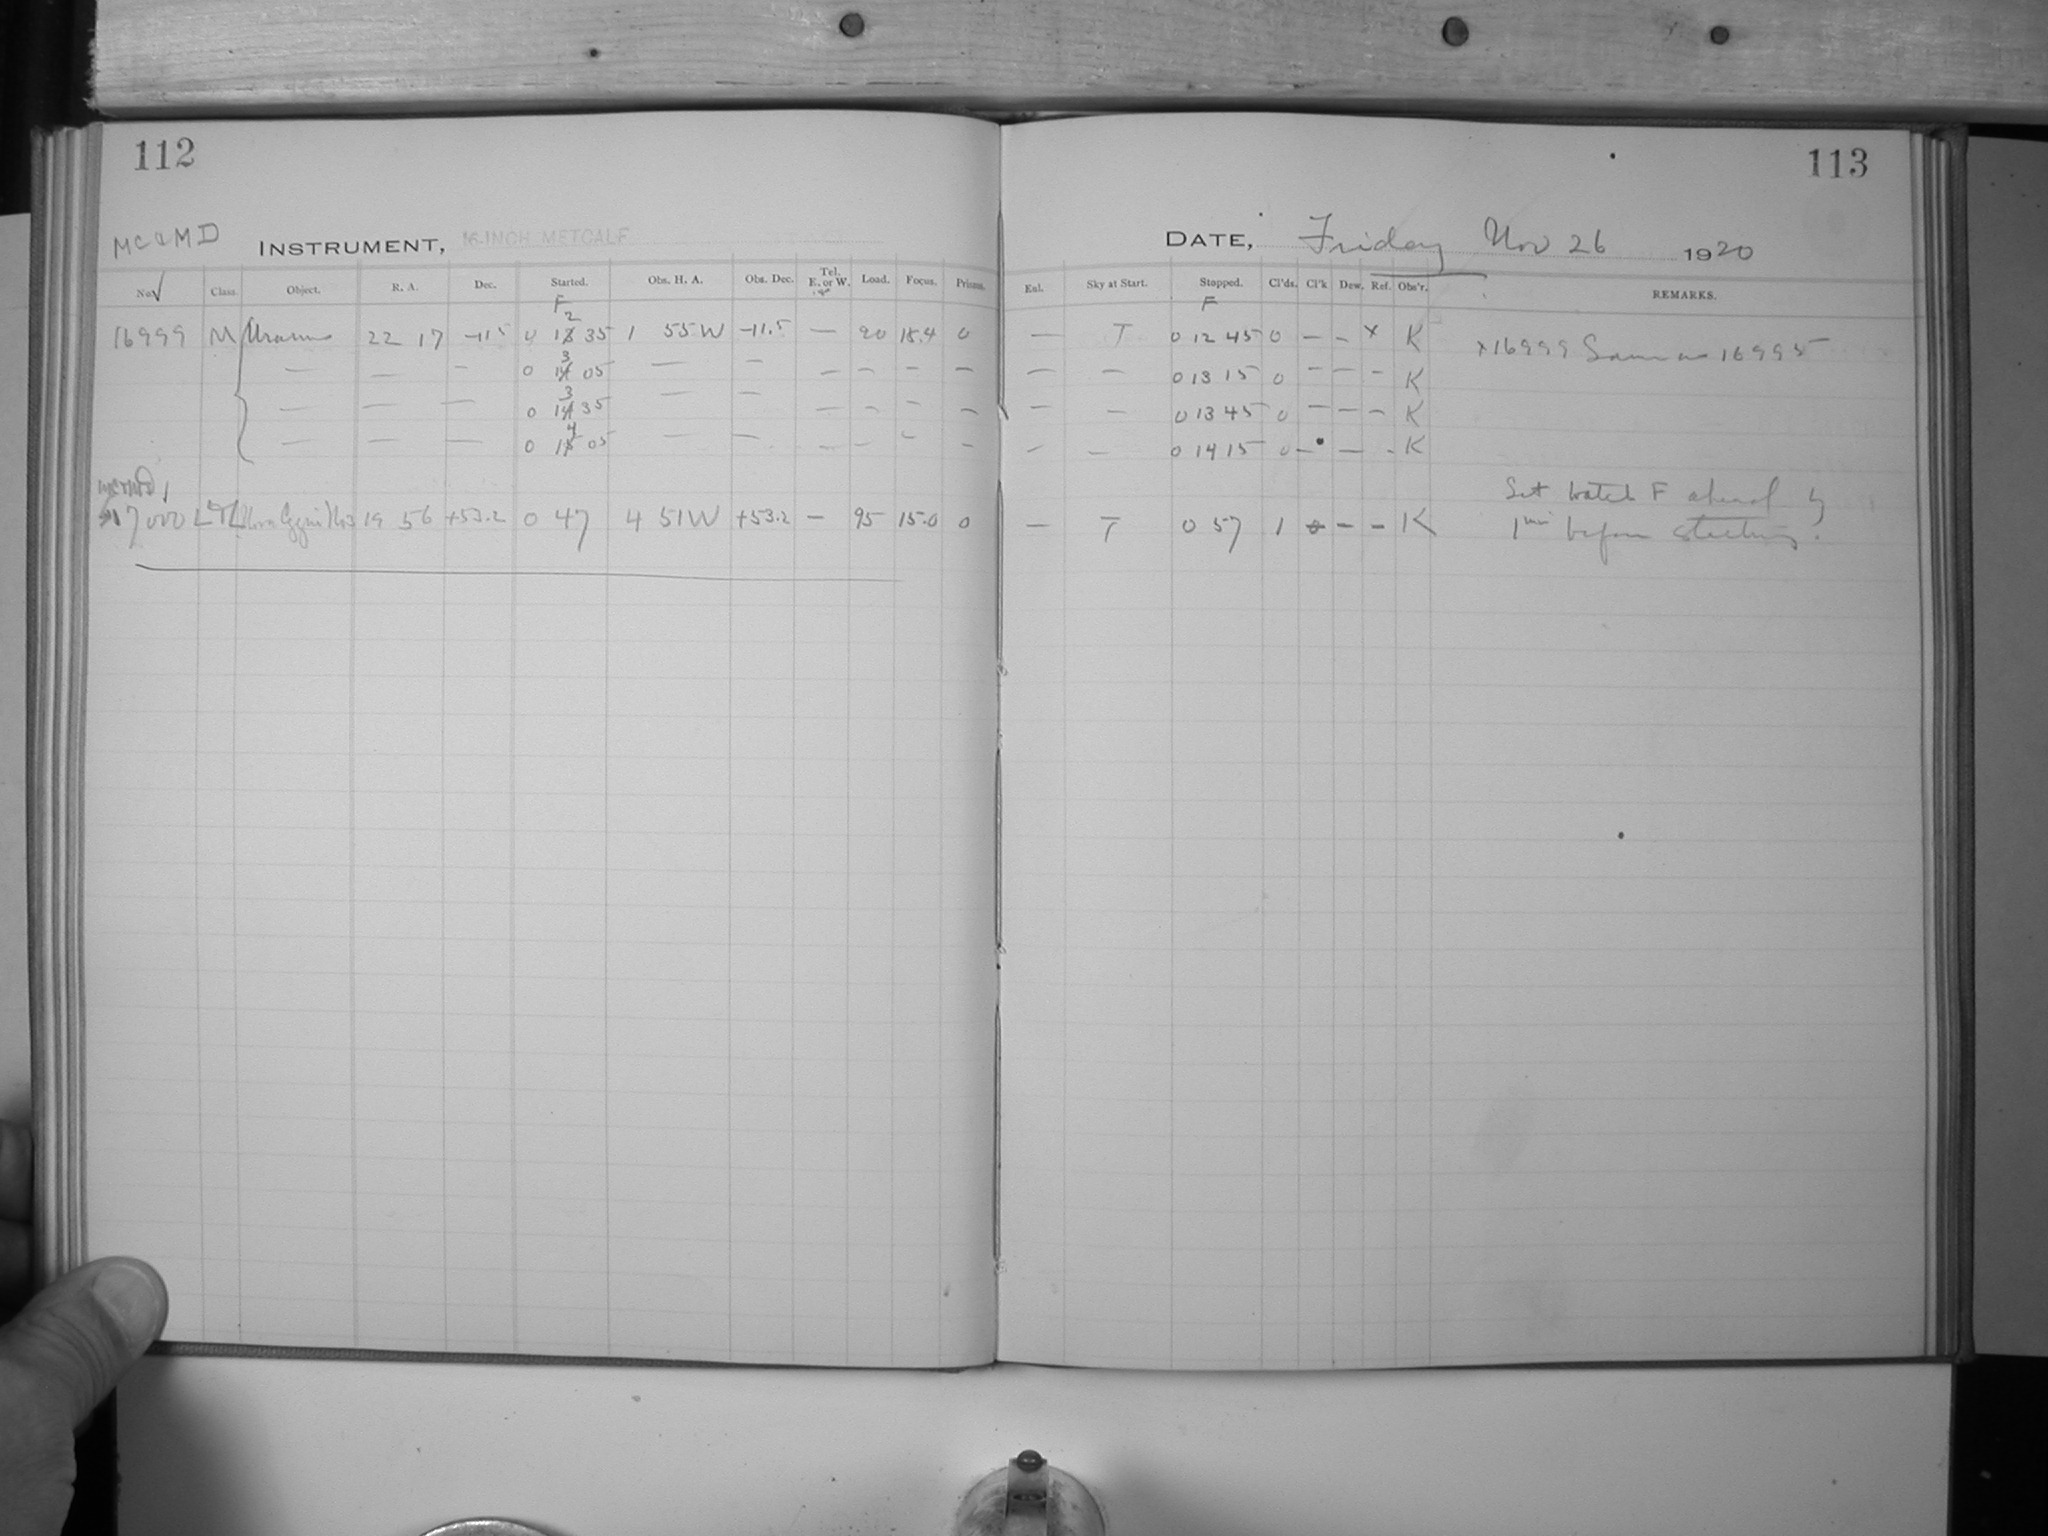 112
MC & MD INSTRUMENT, 16-INCH METCALF
No. Class. Object. R. A. Dec. Started. Obs. H. A. Obs. Dec. Tel. E. or W. Load. Focus. Prisms.
F
16999 M Uranus 22 17 -11.5 0 12 35 1 55 W -11.5 — 90 15.4 0
— — — 0 13 05 — — — — — —
— — — 0 13 35 — — — — — —
— — — 0 14 05 — — — — — —
17000 Nova Cygni No3 19 56 +53.2 0 47 4 51 W +53.2 — 95 15.0 0
113
DATE, Friday Nov 26 1920
Enl. Sky at Start. Stopped. Cl'ds. Cl'k Dew. Ref. Obs'r. REMARKS.
F
— T 0 12 45 0 — — x K x16999 Same as 16995
— — 0 13 15 0 — — — K
— — 0 13 45 0 — — — K
— — 0 14 15 0 — — - K
Set watch F ahead by
— T 0 57 1 — — K 1 min before starting.